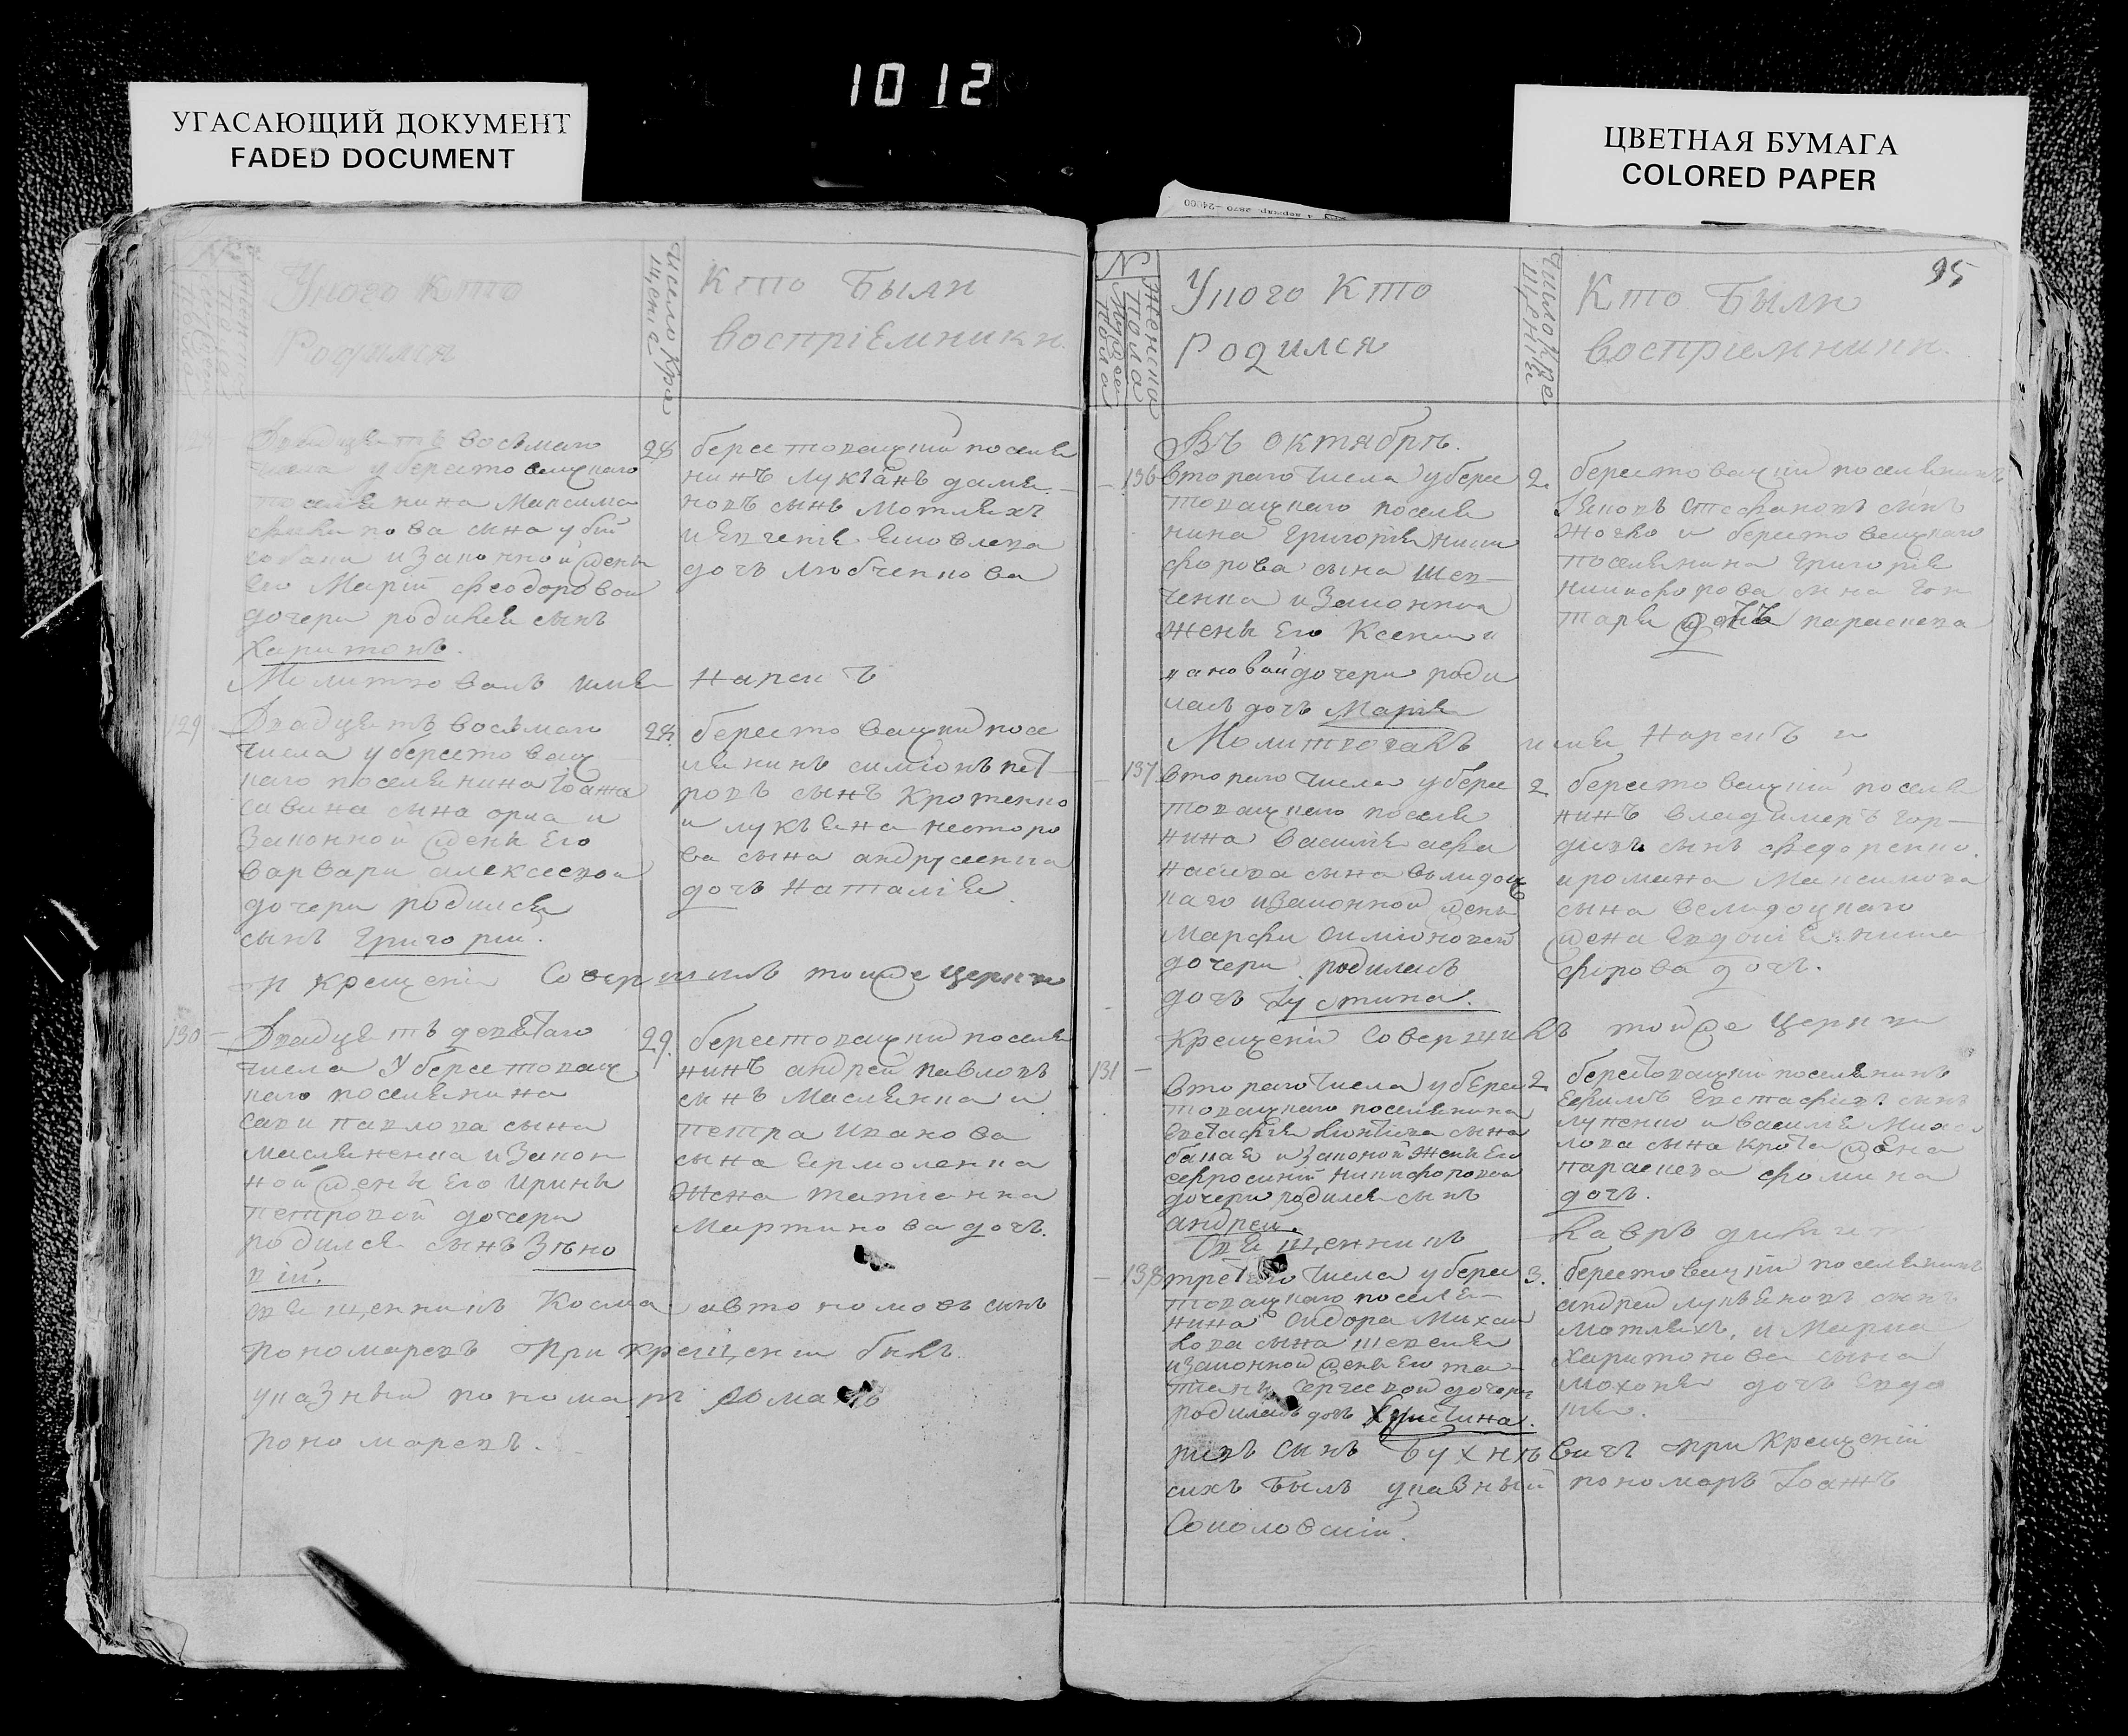 10 12
УГАСАЮЩИЙ ДОКУМЕНТ
FADED DOCUMENT
ЦВЕТНАЯ БУМАГА
COLORED PAPER
Уного Кто
Родился
число Кре
щенiе
Кто Были
воспрiЕмники
Двадцять восьмаго
числа у берестовецкаго
поселянина Максима
сына
и законной жены
Его Марiи Феодоровой
дочери родился сынъ
Харитонъ.
28
берестовецкiй поселя
нинъ Лукiанъ
новъ сынъ Мотляхъ
и Евгенiя
дочь Любченкова
Молитвовалъ имя нарекъ
129
Двадцять восьмаго
числа у берестовец
каго поселянина Iоанна
Савина сына орла и
Законной жены Его
Варвари алексеевой
дочери родился
сынъ Григорiй.
28.
берестовецкiй посе
лянинъ симiонъ пет
ровъ сынъ Кротенко
и лукьяна несторо
ва сына андрущенка
дочь Наталiя.
и крещенiя Совершилъ тойже церкви
130
Двадцять девятаго
числа У берестовец
каго поселянина
Сави павлова сына
масляненка и Закон
ной жены Его Ирины
петровой дочери
родился сынъ Зѣно
вiй.
29.
берестовецкiй поселя
нинъ андрей павловъ
сынъ Маслянка и
петра Иванова
сына Ермоленка
Жена татiанна
Мартинова дочь.
священникъ Косма автономовъ сынъ
пономаревъ При крещенiи былъ
указный пономарь романъ
пономаревъ.
95
N
Женска
Пола
Мужеска
Пола
Уного Кто
Родился
Число Кре
щенiя
Кто Были
воспрiемники.
Въ октябрѣ.
136
втораго числа у берес
товецкаго поселя
нина Григорiя ники
форова сына Шев
ченка и Законной
жены Его Ксенiи
дочери роди
лась дочь Марiя
2.
берестовецкiй поселянинъ
Яковъ Стефановъ сынъ
и берестовецкаго
поселянина Григорiя
никифорова сына Гон
таря дочь параскева
Молитвовалъ имя Нарекъ и
137
втораго числа у берес
товецкаго поселя
нина Василiя афа
насiева сына Велидоц
каго и Законной жены
Марфи Симiоновой
дочери родилась
дочь Iустина.
2
берестовецкiй поселя
нинъ Владимеръ Гор-
дiевъ сынъ федоренко.
и романа Максимова
сына Велидоцкаго
жена Евдокiя ники
форова дочь.
Крещенiй Совершилъ тойже Церкви
131
втораго числа у берес
товецкаго поселянина
Евстафiя Леонтiева сына
и законой Жены Его
Евфросинiй никифоровой
дочери родился сынъ
андрей.
2
берестовецкiй поселянинъ
Евфимъ Евстафiевъ сынъ
Луценко и Василiя Миха
лова сына Крота жена
параскева фомина
дочь.
Священникъ Лавръ
138
третяго числа у берес
товецкаго поселя
нина Сидора Михаи
лова сына шевеля
и законной жены Его та
тiяны Сергеевой дочери
родилась дочь Хрiстина.
3.
берестовецкiй поселянинъ
андрей лукьяновъ сынъ
мотляхъ, и Марка
харитонова сына
мохоня дочь Евдо
кiя.
сынъ Бухнѣвичъ при Крещенiй
сихъ Былъ указный пономарь Iоаннъ
Соколовскiй.